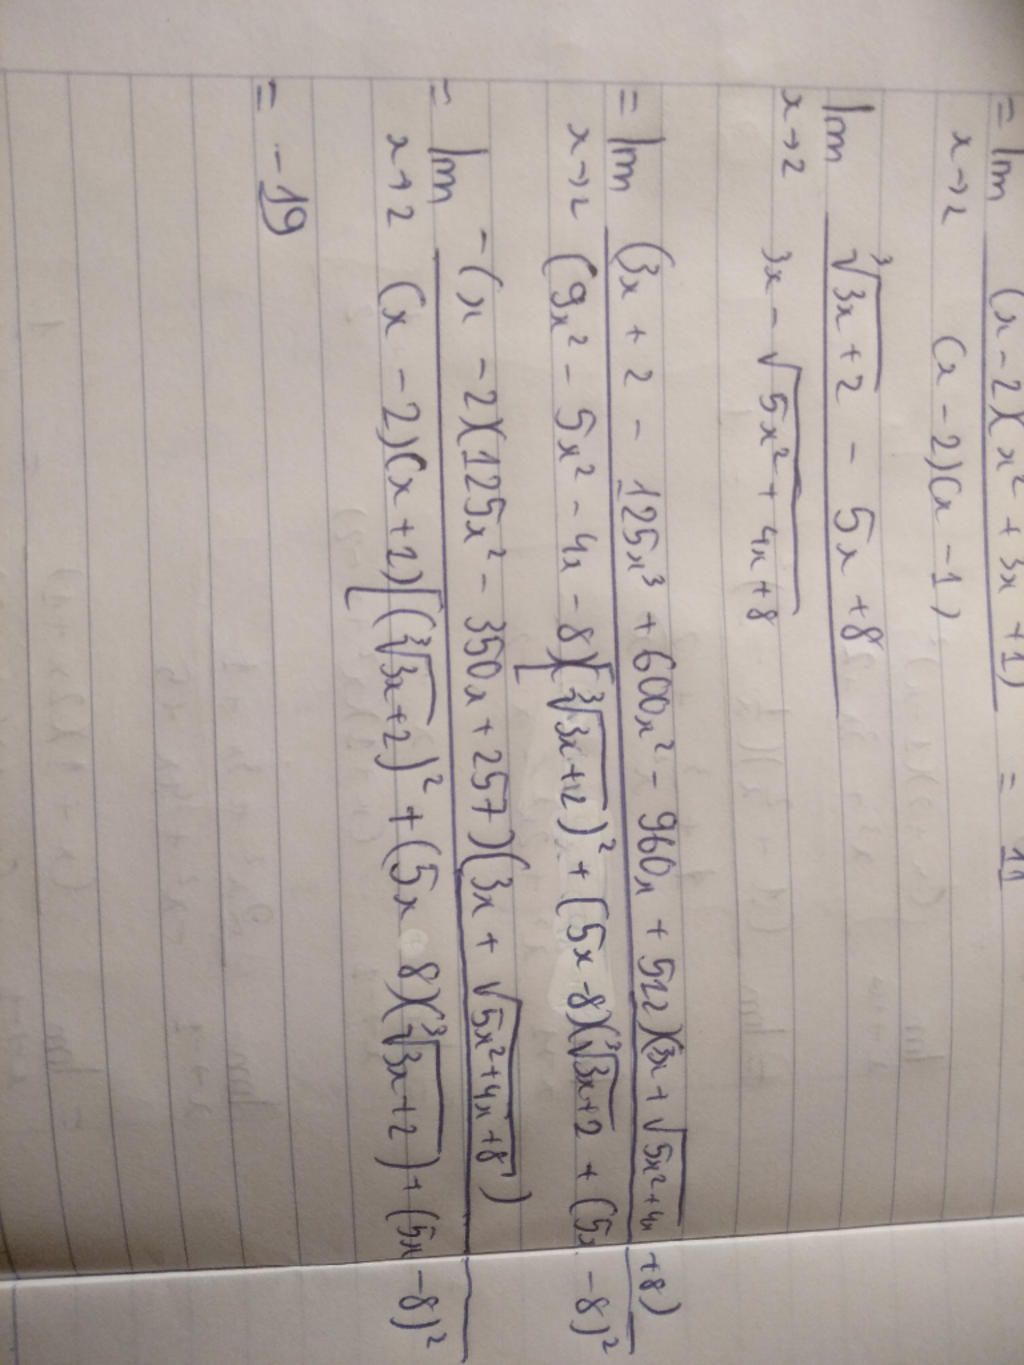 = lim (x-2)(x²+3x+1) = 11
x→2 (x-2)(x-1)
lim ³√3x+2 - 5x+8
x→2 3x-√5x²+4x+8
= lim (3x+2-125x³+600x²-960x+512)(3x+√5x²+4x+8)
x→2 (9x²-5x²-4x-8)[³√3x+2)²+(5x-8)(³√3x+2+(5x-8)²
= lim -(x-2)(125x²-350x+257)(3x+√5x²+4x+8)
x→2 (x-2)(x+2)[(³√3x+2)²+(5x-8)(³√3x+2)+(5x-8)²
= -19